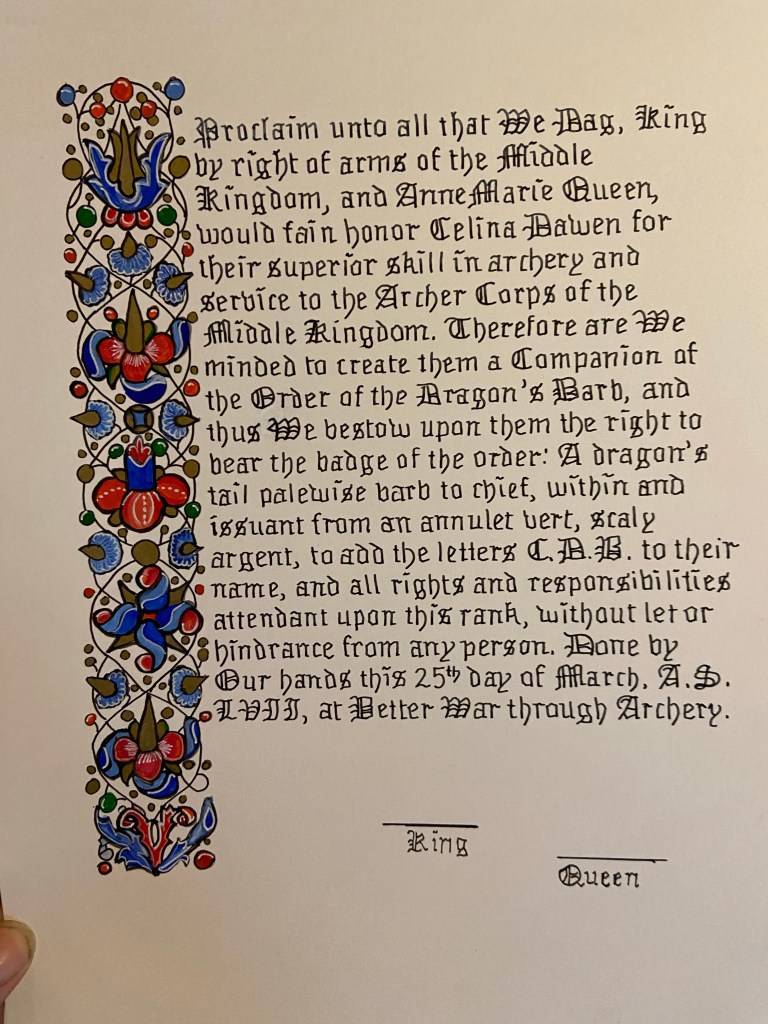 Proclaim unto all that We Dag, King
by right of arms of the Middle
Kingdom, and AnneMarie Queen,
would fain honor Celina Dawen for
their superior skill in archery and
service to the Archer Corps of the
Middle Kingdom. Therefore are We
minded to create them a Companion of
the Order of the Dragon's Barb, and
thus We bestow upon them the right to
bear the badge of the order: A dragon's
tail palewise barb to chief, within and
issuant from an annulet vert, scaly
argent, to add the letters C.D.B. to their
name, and all rights and responsibilities
attendant upon this rank, without let or
hindrance from any person. Done by
Our hands this 25th day of March, A.S.
LVII, at Better War through Archery.
King
Queen